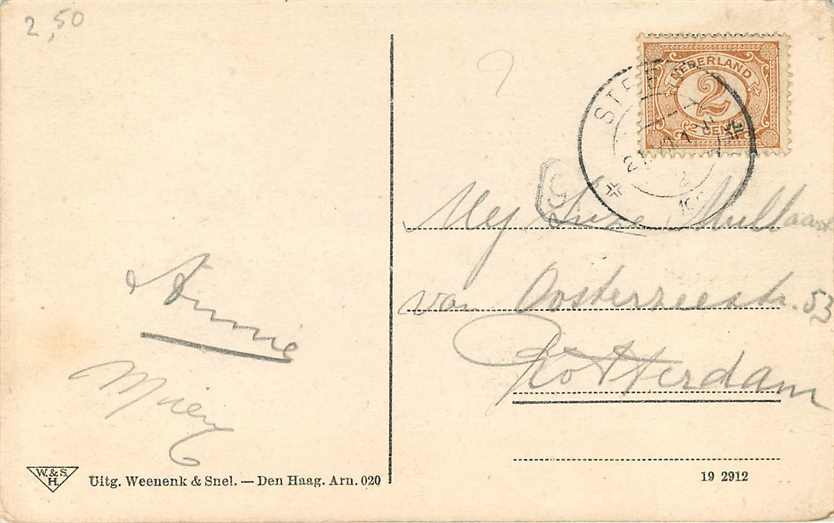 2,50
NEDERLAND
2
2 CENT
STEE
Annie
Mien
Mej Suze Mullaart
van Oosterzeestr. 53
Rotterdam
W.&S.
H.
Uitg. Weenenk & Snel. — Den Haag. Arn. 020
19 2912